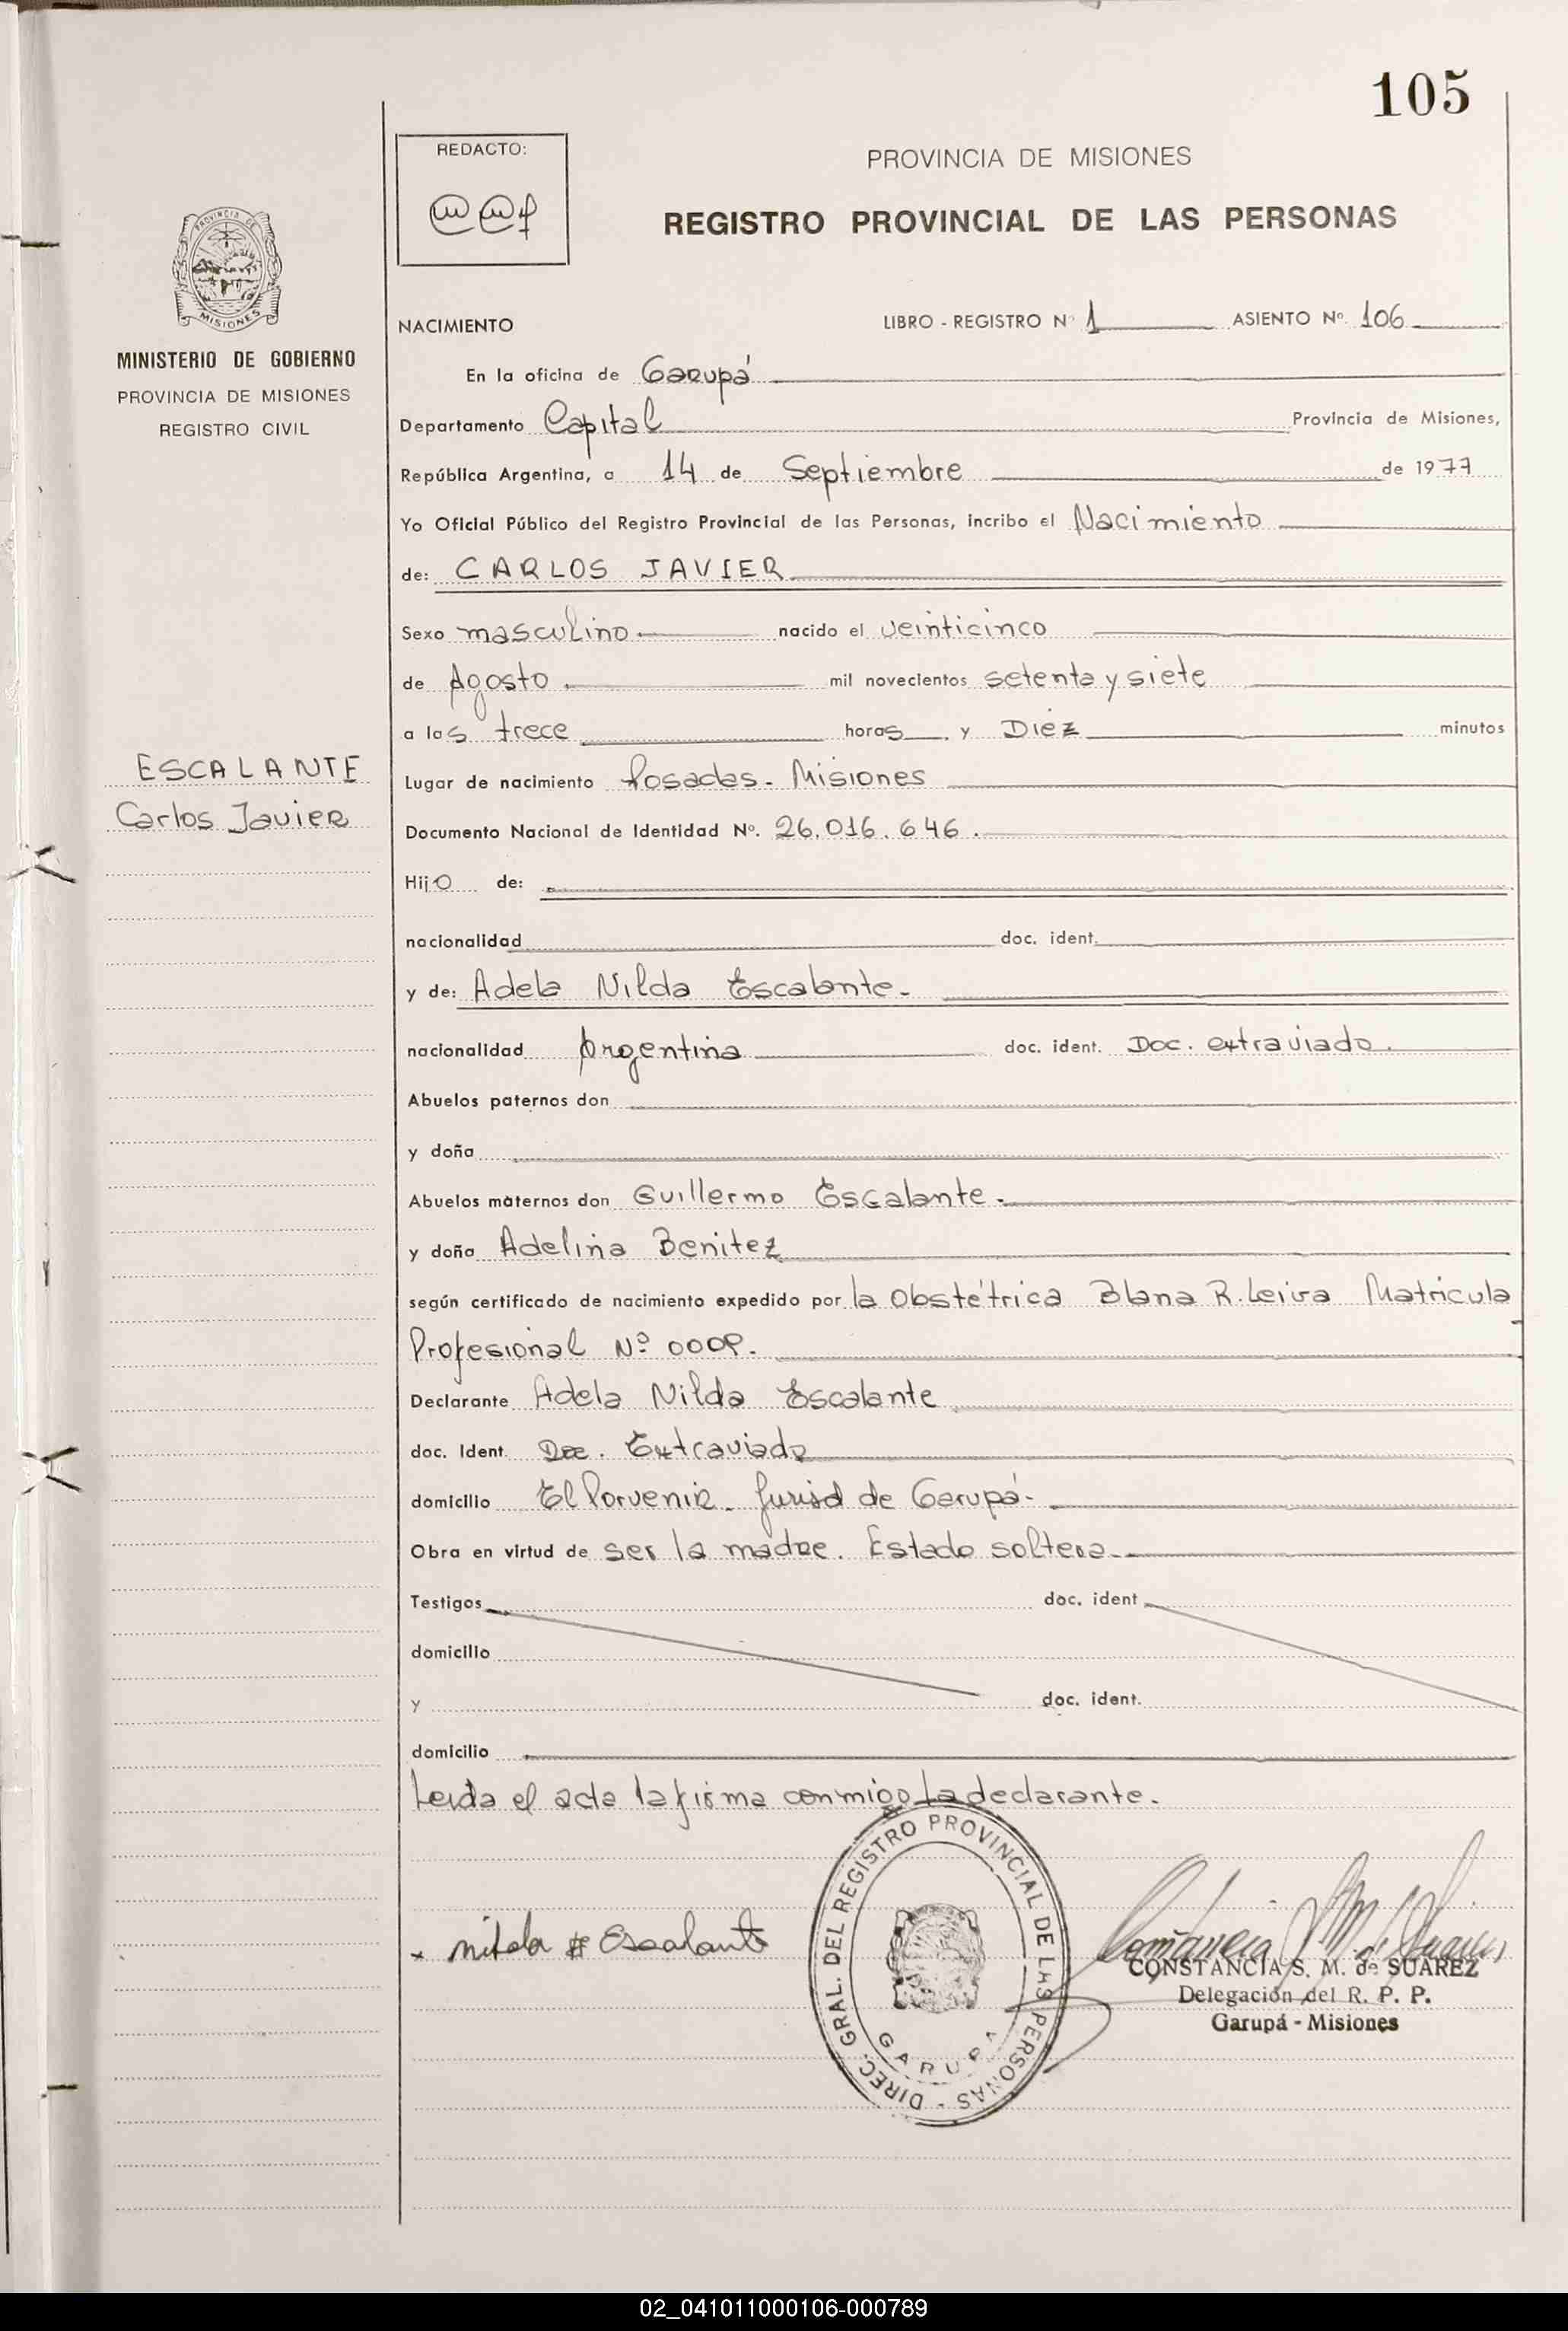 105
REDACTO:
PROVINCIA DE MISIONES
REGISTRO PROVINCIAL DE LAS PERSONAS
PROVINCIA DE
MISIONES
MINISTERIO DE GOBIERNO
PROVINCIA DE MISIONES
REGISTRO CIVIL
NACIMIENTO LIBRO - REGISTRO N° 1 ASIENTO Nº 106
En la oficina de Garupá
Departamento Capital Provincia de Misiones,
República Argentina, a 14 de Septiembre de 1977
Yo Oficial Público del Registro Provincial de las Personas, incribo el Nacimiento
de: CARLOS JAVIER
Sexo masculino nacido el veinticinco
de Agosto mil novecientos setenta y siete
a las trece horas y Diez minutos
ESCALANTE
Carlos Javier
Lugar de nacimiento Posadas - Misiones
Documento Nacional de Identidad Nº. 26.016.646.
Hijo de:
nacionalidad doc. ident.
y de: Adela Nilda Escalante.
nacionalidad Argentina doc. ident. Doc. extraviado.
Abuelos paternos don
y doña
Abuelos maternos don Guillermo Escalante.
y doña Adelina Benitez
según certificado de nacimiento expedido por la Obstétrica Blana R. Leiva Matricula
Profesional Nº
Declarante Adela Nilda Escalante
doc. Ident. Doc. Extraviado
domicilio El Porvenir - Jurisd de Garupá -
Obra en virtud de ser la madre. Estado soltera.
Testigos doc. ident
domicilio
y doc. ident.
domicilio
Leida el acta la firma conmigo la declarante.
DIREC. GRAL. DEL REGISTRO PROVINCIAL DE LAS PERSONAS -
GARUPA
x Escalante
CONSTANCIA S. M. de SUAREZ
Delegación del R. P. P.
Garupá - Misiones
02_041011000106-000789